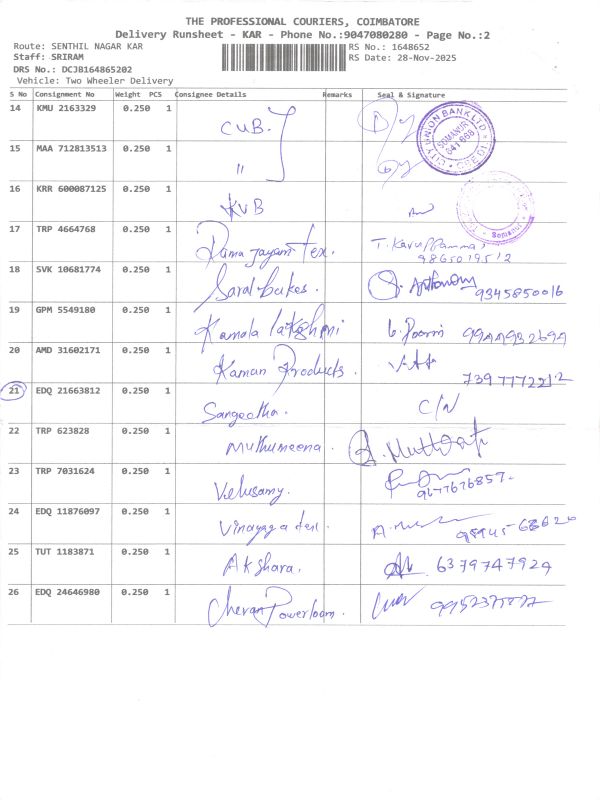 THE PROFESSIONAL COURIERS, COIMBATORE
Delivery Runsheet - KAR - Phone No.:9047080280 - Page No.:2
Route: SENTHIL NAGAR KAR RS No.: 1648652
Staff: SRIRAM RS Date: 28-Nov-2025
DRS No.: DCJB164865202
Vehicle: Two Wheeler Delivery
S No Consignment No Weight PCS Consignee Details Remarks Seal & Signature
14 KMU 2163329 0.250 1 CUB. CITY UNION BANK LTD SOMANUR 641 668
15 MAA 712813513 0.250 1 "
16 KRR 600087125 0.250 1 KVB Somanur
17 TRP 4664768 0.250 1 Rama Jayam Tex. T. Karuppammal
9865019512
18 SVK 10681774 0.250 1 Saral bakes. Anthonny 9345850016
19 GPM 5549180 0.250 1 Kamala lakshmi
20 AMD 31602171 0.250 1 Kaman Products. 7397772212
21 EDQ 21663812 0.250 1 Sangeetha. C/N
22 TRP 623828 0.250 1 Muthumeena.
23 TRP 7031624 0.250 1 Velusamy. 9677676857.
24 EDQ 11876097 0.250 1 Vinayaga tex.
25 TUT 1183871 0.250 1 Akshara. 6379747924
26 EDQ 24646980 0.250 1 Cheran Powerloom.